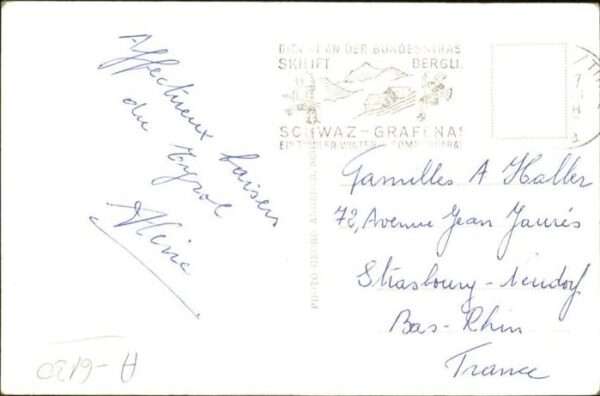 Affectueux baisers
du Tyrol
DIREKT AN DER BUNDESSTRAS
SKILIFT BERGLI
SCHWAZ-GRAFENAS
Familles A Haller
72, Avenue Jean Jaurés
Strasbourg - Neudorf
Bas-Rhin
France
A-6130